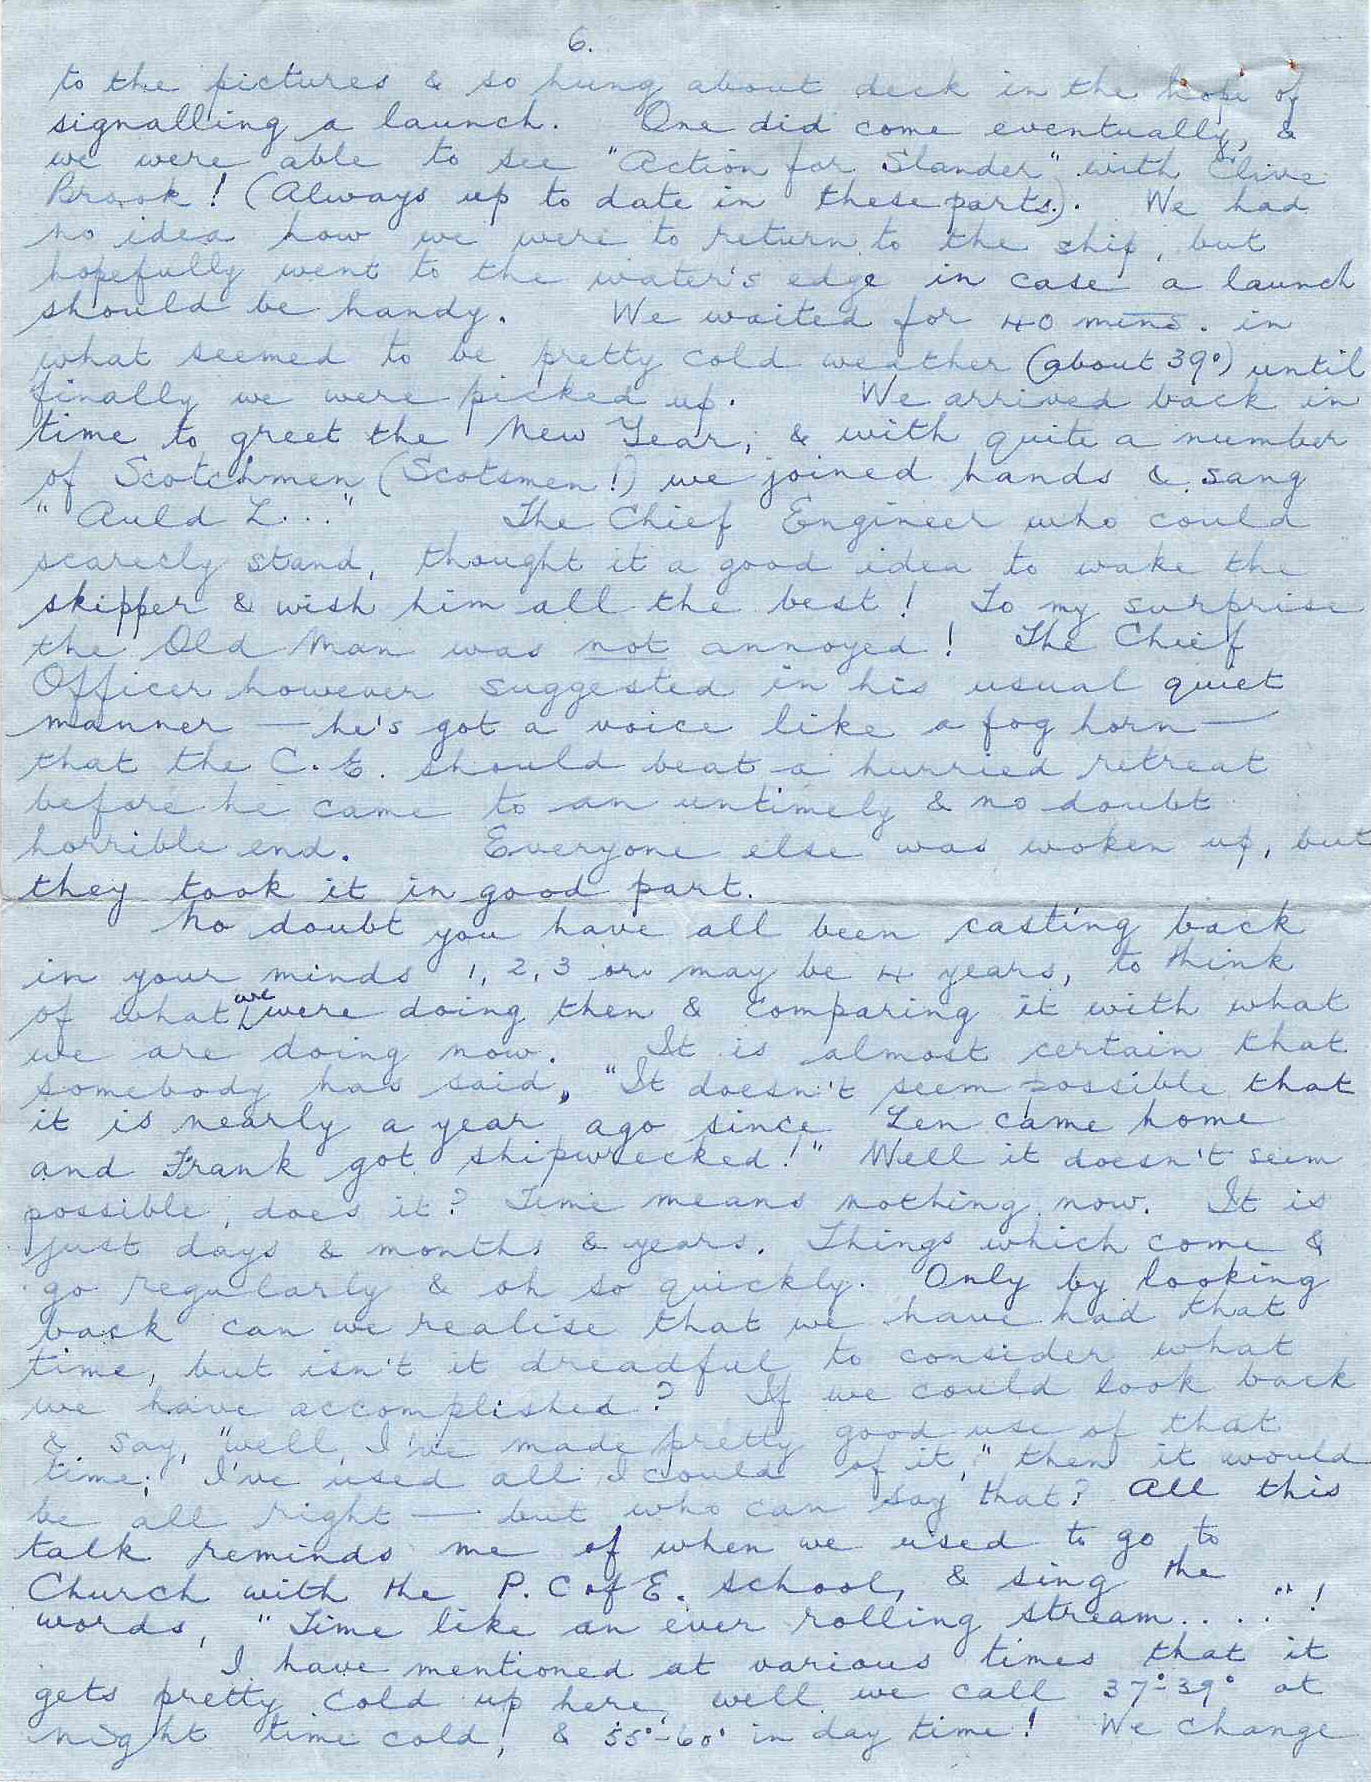 6.
to the pictures & so hung about deck in the hope of
signalling a launch. One did come eventually, &
we were able to see "Action for Slander" with Clive
Brook! (Always up to date in these parts.). We had
no idea how we were to return to the ship, but
hopefully went to the water's edge in case a launch
should be handy. We waited for 40 mins. in
what seemed to be pretty cold weather (about 39°) until
finally we were picked up. We arrived back in
time to greet the New Year, & with quite a number
of Scotchmen (Scotsmen!) we joined hands & sang
"Auld L..." The Chief Engineer who could
scarecly stand, thought it a good idea to wake the
skipper & wish him all the best! To my surprise
the Old Man was not annoyed! The Chief
Officer however suggested in his usual quiet
manner — he's got a voice like a fog horn —
that the C.E. should beat a hurried retreat
before he came to an untimely & no doubt
horrible end. Everyone else was woken up, but
they took it in good part.
No doubt you have all been casting back
in your minds 1, 2, 3 or may be 4 years, to think
of what we were doing then & comparing it with what
we are doing now. It is almost certain that
somebody has said, "It doesn't seem possible that
it is nearly a year ago since Len came home
and Frank got shipwrecked!" Well it doesn't seem
possible, does it? Time means nothing now. It is
just days & months & years. Things which come &
go regularly & oh so quickly. Only by looking
back can we realise that we have had that
time, but isn't it dreadful to consider what
we have accomplished? If we could look back
& say, "well, I've made pretty good use of that
time; I've used all I could of it," then it would
be all right — but who can say that? All this
talk reminds me of when we used to go to
Church with the P. C of E. School, & sing the
words, "Time like an ever rolling stream...."!
I have mentioned at various times that it
gets pretty cold up here, well we call 37°-39° at
night time cold, & 55°-60° in day time! We change